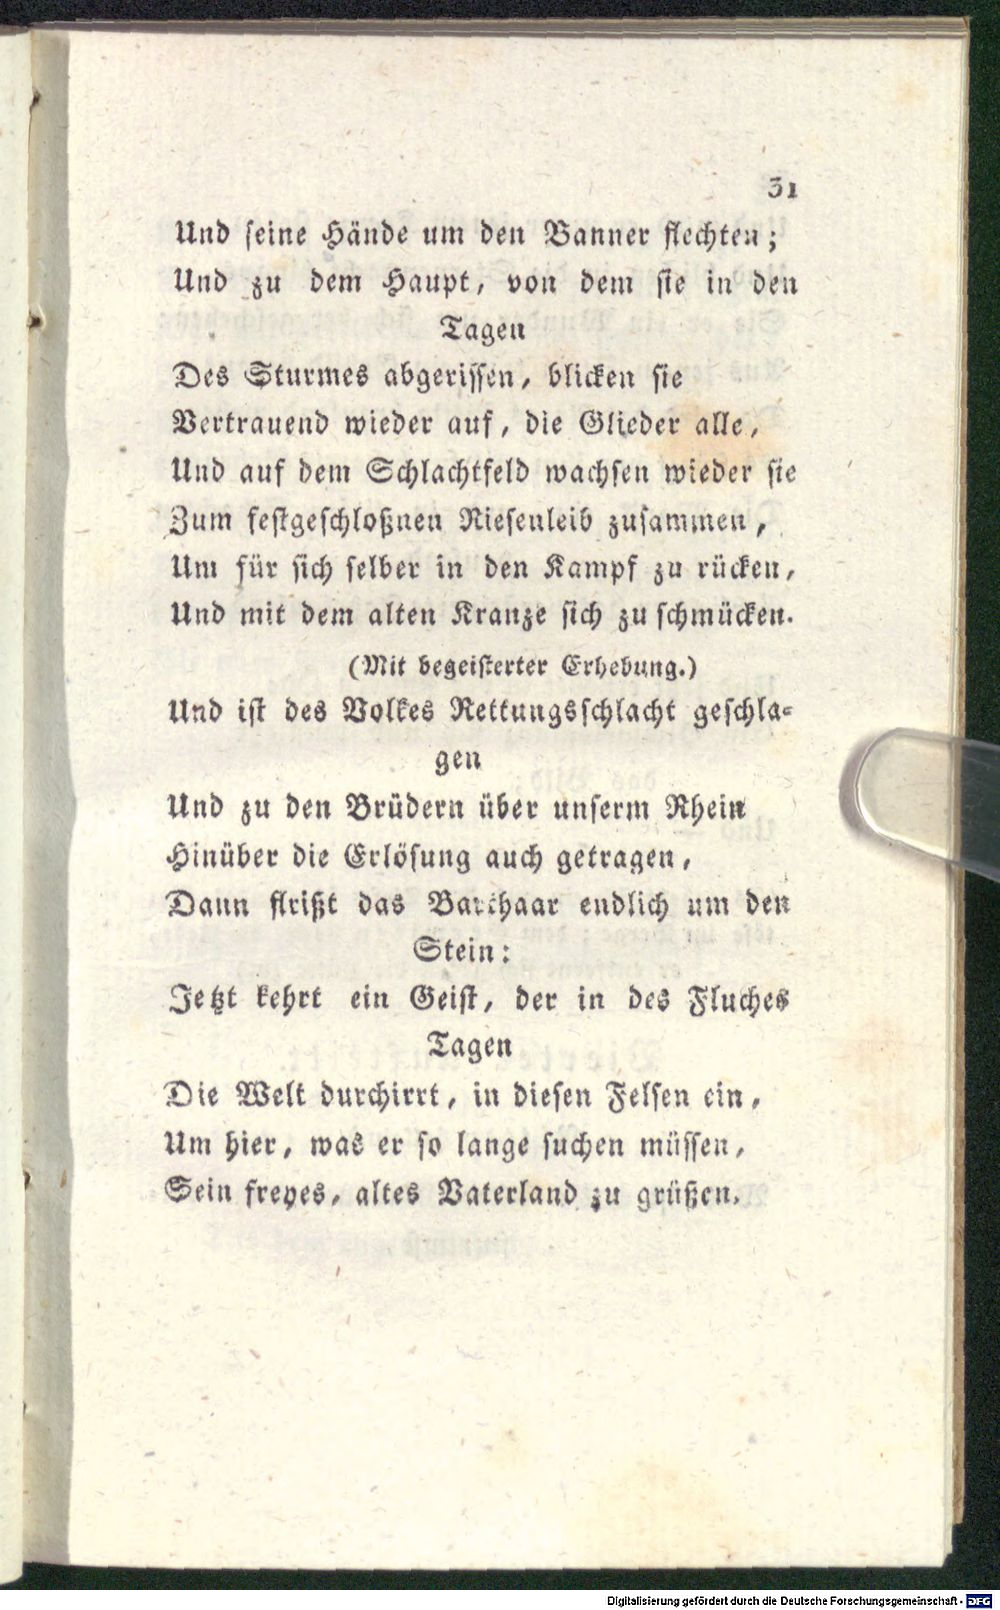 31
Und seine Hände um den Banner flechten;
Und zu dem Haupt, von dem sie in den
Tagen
Des Sturmes abgerissen, blicken sie
Vertrauend wieder auf, die Glieder alle,
Und auf dem Schlachtfeld wachsen wieder sie
Zum festgeschloßnen Riesenleib zusammen,
Um für sich selber in den Kampf zu rücken,
Und mit dem alten Kranze sich zu schmücken.
(Mit begeisterter Erhebung.)
Und ist des Volkes Rettungsschlacht geschla-
gen
Und zu den Brüdern über unserm Rhein
Hinüber die Erlösung auch getragen,
Dann flrißt das Barthaar endlich um den
Stein:
Jetzt kehrt ein Geist, der in des Fluches
Tagen
Die Welt durchirrt, in diesen Felsen ein,
Um hier, was er so lange suchen müssen,
Sein freyes, altes Vaterland zu grüßen.
Digitalisierung gefördert durch die Deutsche Forschungsgemeinschaft - DFG